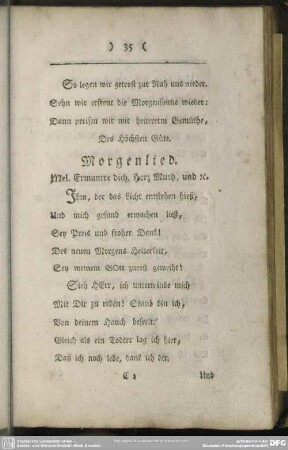 ) 35 (
So legen wir getrost zur Ruh uns nieder.
Sehn wir erfreut die Morgensonne wieder:
Dann preisen wir mit heiterem Gemüthe,
Des Höchsten Güte.
Morgenlied.
Mel. Ermuntre dich, Herz Muth, und ꝛc.
Ihm, der das Licht entstehen hieß,
Und mich gesund erwachen ließ,
Sey Preis und froher Dank!
Des neuen Morgens Heiterkeit,
Sey meinem GOtt zuerst geweiht!
Sieh HErr, ich unterwinde mich
Mit Dir zu reden! Staub bin ich,
Von deinem Hauch beseelt.
Gleich als ein Todter lag ich hier,
Daß ich noch lebe, dank ich dir.
C 2 Und